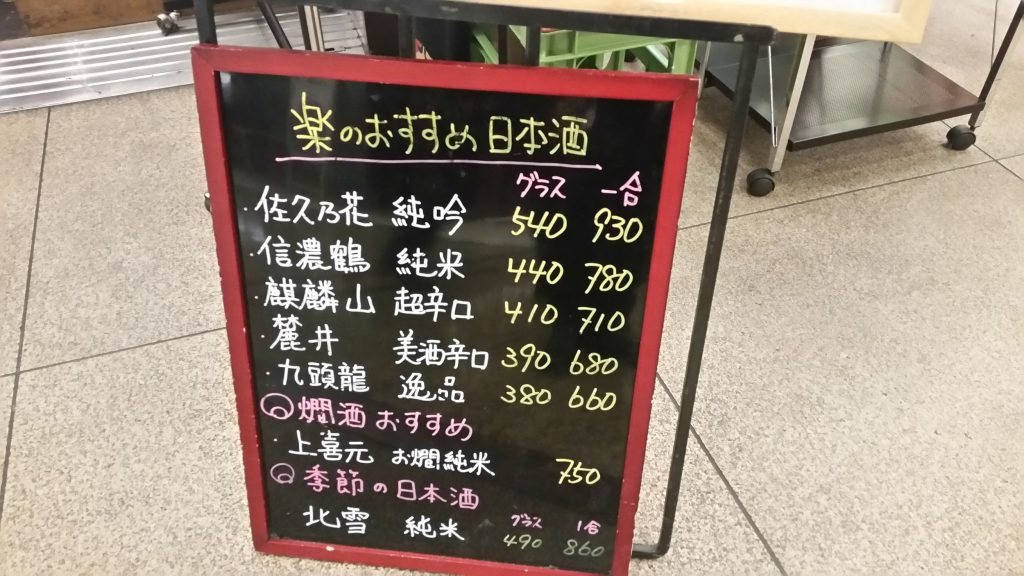 楽のおすすめ日本酒
グラス 一合
・佐久乃花 純吟 540 930
・信濃鶴 純米 440 780
・麒麟山 超辛口 410 710
・麓井 美酒辛口 390 680
・九頭龍 逸品 380 660
燗酒おすすめ
・上喜元 お燗純米 750
季節の日本酒
グラス 1合
北雪 純米 490 860